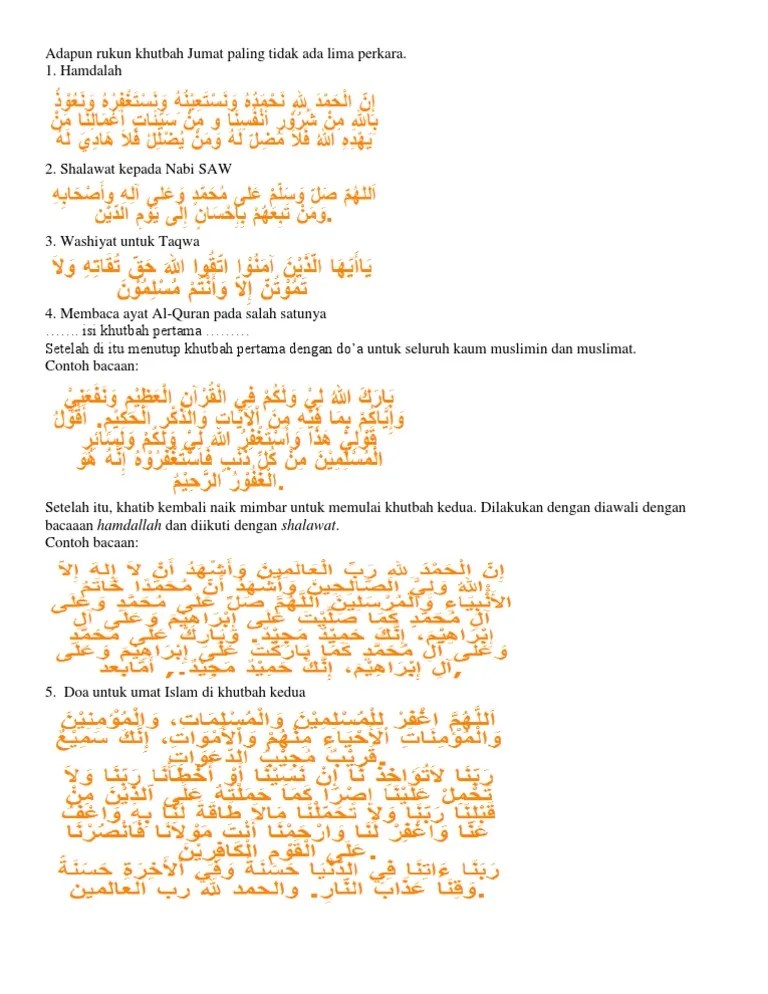 Adapun rukun khutbah Jumat paling tidak ada lima perkara.
1. Hamdalah
إِنَّ الْحَمْدَ لِلهِ نَحْمَدُهُ وَنَسْتَعِيْنُهُ وَنَسْتَغْفِرُهُ وَنَعُوْذُ
بِاللهِ مِنْ شُرُوْرِ أَنْفُسِنَا وَ مِنْ سَيِّئَاتِ أَعْمَالِنَا مَنْ
يَهْدِهِ اللهُ فَلَا مُضِلَّ لَهُ وَمَنْ يُضْلِلْ فَلَا هَادِيَ لَهُ
2. Shalawat kepada Nabi SAW
اَللهُمَّ صَلِّ وَسَلِّمْ عَلى مُحَمَّدٍ وَعَلى آلِهِ وأَصْحَابِهِ
وَمَنْ تَبِعَهُمْ بِإِحْسَانٍ إِلَى يَوْمِ الدِّيْن.
3. Washiyat untuk Taqwa
يَاأَيُّهَا الَّذِيْنَ آمَنُوْا اتَّقُوا اللهَ حَقَّ تُقَاتِهِ وَلَا
تَمُوْتُنَّ إِلاَّ وَأَنْتُمْ مُسْلِمُوْنَ
4. Membaca ayat Al-Quran pada salah satunya
……. isi khutbah pertama ………
Setelah di itu menutup khutbah pertama dengan do’a untuk seluruh kaum muslimin dan muslimat.
Contoh bacaan:
بَارَكَ اللهُ لِيْ وَلَكُمْ فِي الْقُرْآنِ الْعَظِيْمِ وَنَفَعَنِيْ
وَإِيَّاكُمْ بِمَا فَيْهِ مِنَ الْآيَاتِ وَالذِّكْرِ الْحَكِيْمِ. أَقُوْلُ
قَوْلِيْ هَذَا وَأَسْتَغْفِرُ اللهَ لِيْ وَلَكُمْ وَلِسَائِرِ
الْمُسْلِمِيْنَ مِنْ كُلِّ ذَنْبٍ فَاسْتَغْفِرُوْهُ إِنَّهُ هُوَ
الْغَفُوْرُ الرَّحِيْمُ.
Setelah itu, khatib kembali naik mimbar untuk memulai khutbah kedua. Dilakukan dengan diawali dengan
bacaaan hamdallah dan diikuti dengan shalawat.
Contoh bacaan:
إِنَّ الْحَمْدَ لِلهِ رَبِّ الْعَالَمِينَ وَأَشْهَدُ أَنْ لاَ إِلهَ إِلاَّ
اللهُ وَلِيُّ الصَّالِحِينَ وَأَشْهَدُ أَنَّ مُحَمَّدًا خَاتَمُ
الأَنْبِيَاءِ وَالْمُرْسَلِينَ اللَّهُمَّ صَلِّ عَلَى مُحَمَّدٍ وَعَلَى
آلِ مُحَمَّدٍ كَمَا صَلَّيْتَ عَلَى إِبْرَاهِيْمَ وَعَلَى آلِ
إِبْرَاهِيْمَ، إِنَّكَ حَمِيْدٌ مَجِيْدٌ. وَبَارِكْ عَلَى مُحَمَّدٍ
وَعَلَى آلِ مُحَمَّدٍ كَمَا بَارَكْتَ عَلَى إِبْرَاهِيْمَ وَعَلَى
آلِ إِبْرَاهِيْمَ، إِنَّكَ حَمِيْدٌ مَجِيْدٌ., أَمَّابَعد,
5. Doa untuk umat Islam di khutbah kedua
اَللَّهُمَّ اغْفِرْ لِلْمُسْلِمِيْنَ وَالْمُسْلِمَاتِ، وَالْمُؤْمِنِيْنَ
وَالْمُؤْمِنَاتِ اْلأَحْيَاءِ مِنْهُمْ وَاْلأَمْوَاتِ، إِنَّكَ سَمِيْعٌ
قَرِيْبٌ مُجِيْبُ الدَّعَوَاتِ.
رَبَّنَا لاَتُؤَاخِذْ نَا إِنْ نَسِيْنَا أَوْ أَخْطَأْنَا رَبَّنَا وَلاَ
تَحْمِلْ عَلَيْنَا إِصْرًا كَمَا حَمَلْتَهُ عَلَى الَّذِيْنَ مِنْ
قَبْلِنَا رَبَّنَا وَلاَ تُحَمِّلْنَا مَالاَ طَاقَةَ لَنَا بِهِ وَاعْفُ
عَنَّا وَاغْفِرْ لَنَا وَارْحَمْنَا أَنْتَ مَوْلاَنَا فَانْصُرْنَا
عَلَى الْقَوْمِ الْكَافِرِيْنَ.
رَبَّنَا ءَاتِنَا فِي الدُّنْيَا حَسَنَةً وَفِي اْلأَخِرَةِ حَسَنَةً
وَقِنَا عَذَابَ النَّارِ. والحمد لله رب العالمين.